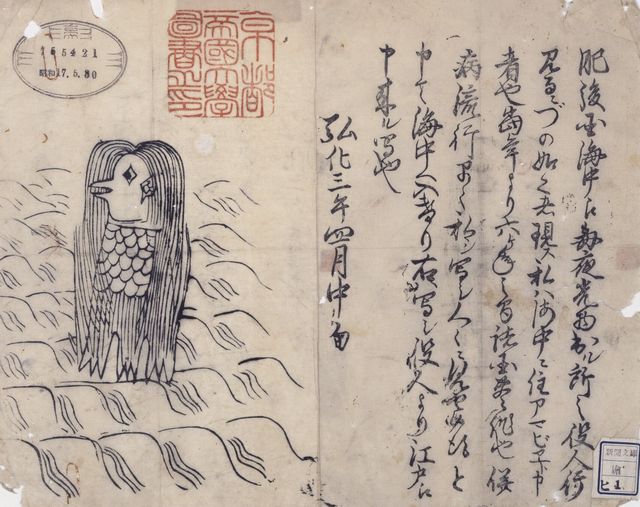 肥後国海中え毎夜光物出ル所之役人行
見るニづの如く者現ス私ハ海中ニ住アマビヱト申
者也當年より六ヶ年之間諸国豊作也併
病流行早々私ヲ写シ人々ニ見せ候得と
申て海中へ入けり右写シ役人より江戸え
申来ル写也
弘化三年四月中旬
京都
帝國大學
圖書之印
165421
昭和17.5.30
新聞文庫
繪
ヒ 1